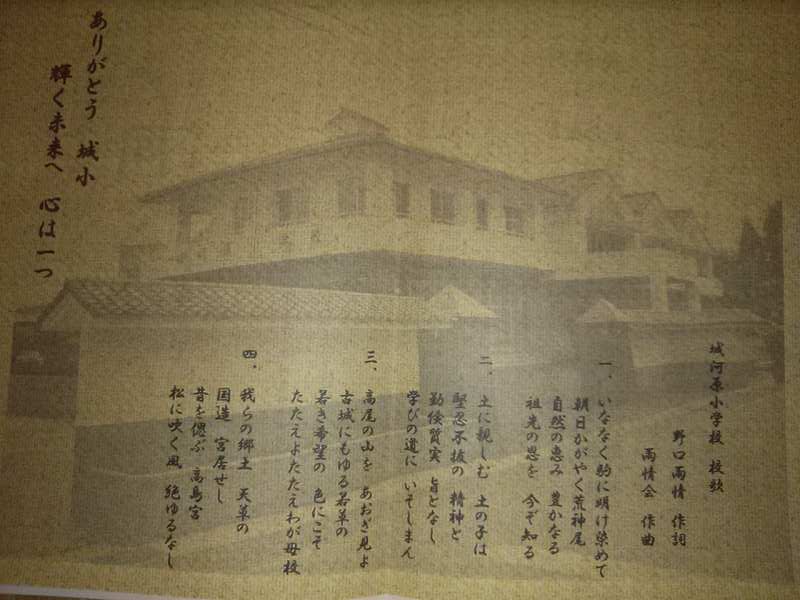 城河原小学校 校歌
野口雨情 作詞
雨情会 作曲
一、いななく駒に明け染めて
朝日かがやく荒神尾
自然の恵み 豊かなる
祖先の恩を 今ぞ知る
二、土に親しむ 土の子は
堅忍不抜の 精神と
勤倹質実 旨となし
学びの道に いそしまん
三、高尾の山を あおぎ見よ
古城にもゆる若草の
若き希望の 色にこそ
たたえよたたえわが母校
四、我らの郷土 天草の
国造 宮居せし
昔を偲ぶ 高島宮
松に吹く風 絶ゆるなし
ありがとう 城小
輝く未来へ 心は一つ